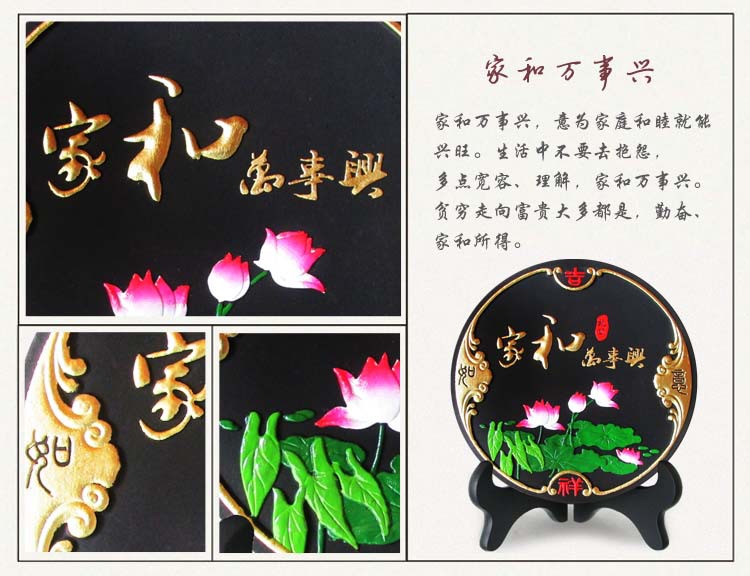 家和
萬事興
如
家
家和万事兴
家和万事兴，意为家庭和睦就能
兴旺。生活中不要去抱怨，
多点宽容、理解，家和万事兴。
贫穷走向富贵大多都是，勤奋、
家和所得。
吉
家和
萬事興
如
意
祥